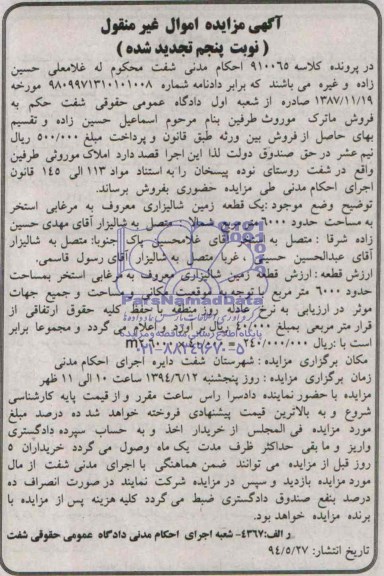 آگهی مزایده اموال غیر منقول
( نوبت پنجم تجدید شده )
در پرونده کلاسه ۹۱۰۰۶۵ احکام مدنی شفت محکوم له غلامعلی حسین
زاده و غیره می باشند که برابر دادنامه شماره ۹۸۰۹۹۷۱۳۱۰۱۰۱۰۰۸ مورخه
۱۳۸۷/۱۱/۱۹ صادره از شعبه اول دادگاه عمومی حقوقی شفت حکم به
فروش ماترک موروث طرفین بنام مرحوم اسماعیل حسین زاده و تقسیم
بهای حاصل از فروش بین ورثه طبق قانون و پرداخت مبلغ ۵۰۰/۰۰۰ ریال
نیم عشر در حق صندوق دولت لذا این اجرا قصد دارد املاک موروثی طرفین
واقع در شفت روستای نوده پیسخان را به استناد مواد ۱۱۳ الی ۱۴۵ قانون
اجرای احکام مدنی طی مزایده حضوری بفروش برساند.
توضیح وضع موجود :یک قطعه زمین شالیزاری معروف به مرغابی استخر
به مساحت حدود ۶۰۰۰ متر مربع شمالا : متصل به شالیزار آقای مهدی حسین
زاده شرقا : متصل به شالیزار آقای غلامحسین پاک جنوبا: متصل به شالیزار
آقای عبدالحسین حسینی و غربا متصل به شالیزار آقای رسول قاسمی
ارزش قطعه : ارزش قطعه زمین شالیزاری معروف به مرغابی استخر بمساحت
حدود ۶۰۰۰ متر مربع با توجه به موقعیت مکانی و مساحت و جمیع جهات
موثر در ارزیابی به نرخ عادله روز منطقه با حفظ کلیه حقوق ارتفاقی از
قرار متر مربعی بمبلغ ۴۰/۰۰۰ ریال بر آورد و اعلام می گردد و مجموعا برابر
است با :ریال ۲۴۰/۰۰۰/۰۰۰ = ۴۰/۰۰۰ × ۶۰۰۰ m۲
مکان برگزاری مزایده : شهرستان شفت دایره اجرای احکام مدنی
زمان برگزاری مزایده : روز پنجشنبه ۱۳۹۴/۶/۱۲ ساعت ۱۰ الی ۱۱ ظهر
مزایده با حضور نماینده دادسرا راس ساعت مقرر و از قیمت پایه کارشناسی
شروع و به بالاترین قیمت پیشنهادی فروخته خواهد شد ده درصد مبلغ
مورد مزایده فی المجلس از خریدار اخذ و به حساب سپرده دادگستری
واریز و ما بقی حداکثر ظرف مدت یک ماه وصول می گردد خریداران ۵
روز قبل از مزایده می توانند ضمن هماهنگی با اجرای مدنی شفت از مال
مورد مزایده بازدید و سپس در مزایده شرکت نمایند در صورت انصراف ده
درصد بنفع صندوق دادگستری ضبط می گردد کلیه هزینه پس از مزایده با
برنده مزایده خواهد بود.
ر الف:۴۳۶۷- شعبه اجرای احکام مدنی دادگاه عمومی حقوقی شفت
تاریخ انتشار: ۹۴/۵/۲۷
ParsNamadData
پایگاه اطلاع رسانی مناقصه و مزایده
۰۲۱-۸۸۳۴۹۶۷۰-۵